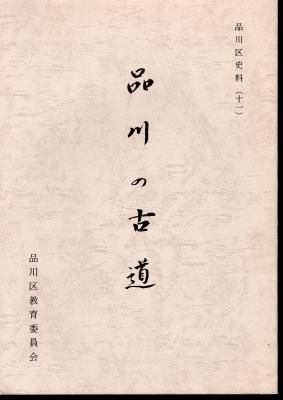 品川区史料(十一)
品川の古道
品川区教育委員会